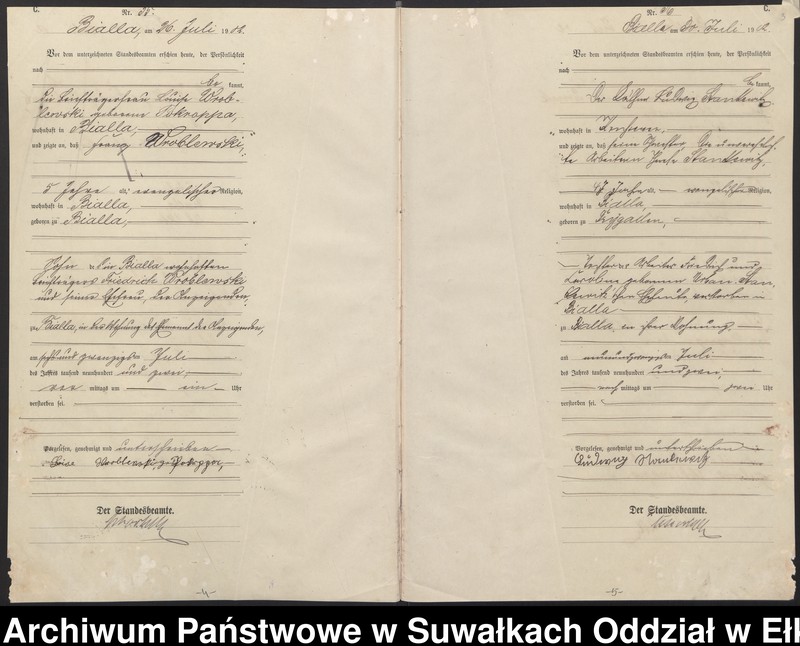 C.
Nr. 38.
Bialla, am 26. Juli 1902.
Vor dem unterzeichneten Standesbeamten erschien heute, der Persönlichkeit
nach
be kannt,
die Briefträgerfrau Louise Wrob-
lewski geborene Pokroppa,
wohnhaft in Bialla,
und zeigte an, daß Franz Wroblewski,
5 Jahre alt, evangelischer Religion,
wohnhaft in Bialla,
geboren zu Bialla,
Sohn des in Bialla wohnhaften
Briefträgers Friedrich Wroblewski
und seiner Ehefrau, der Anzeigenden,
zu Bialla, in der Wohnung des Ehemanns der Anzeigenden,
am sechsundzwanzigsten Juli
des Jahres tausend neunhundert und zwei
vor mittags um ein Uhr
verstorben sei.
Vorgelesen, genehmigt und unterschrieben
Wroblewski, g. Pokroppa,
Der Standesbeamte.
-4-
C.
Nr.
Bialla am 30. Juli 1902.
Vor dem unterzeichneten Standesbeamten erschien heute, der Persönlichkeit
nach
be kannt,
Der Ludwig Stankewitz
wohnhaft in
und zeigte an, daß seine Schwester, die unverehelich-
te Arbeiterin Stankewitz,
Jahre evangelischer Religion,
wohnhaft in Bialla,
geboren zu
Tochter des Arbeiter und
Caroline geborenen Stan-
Eheleute, verstorben in
Bialla
zu Bialla, in ihrer Wohnung,
am neunundzwanzigsten Juli
des Jahres tausend neunhundert und zwei,
nach mittags um zwei Uhr
verstorben sei.
Vorgelesen, genehmigt und unterschrieben
Ludwig Stankewitz
Der Standesbeamte.
-5-
Archiwum Państwowe w Suwałkach Oddział w Ełk